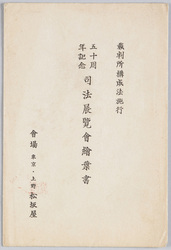 裁判所構成法施行
五十周年記念
司法展覽會繪葉書
會場 東京・上野 松坂屋